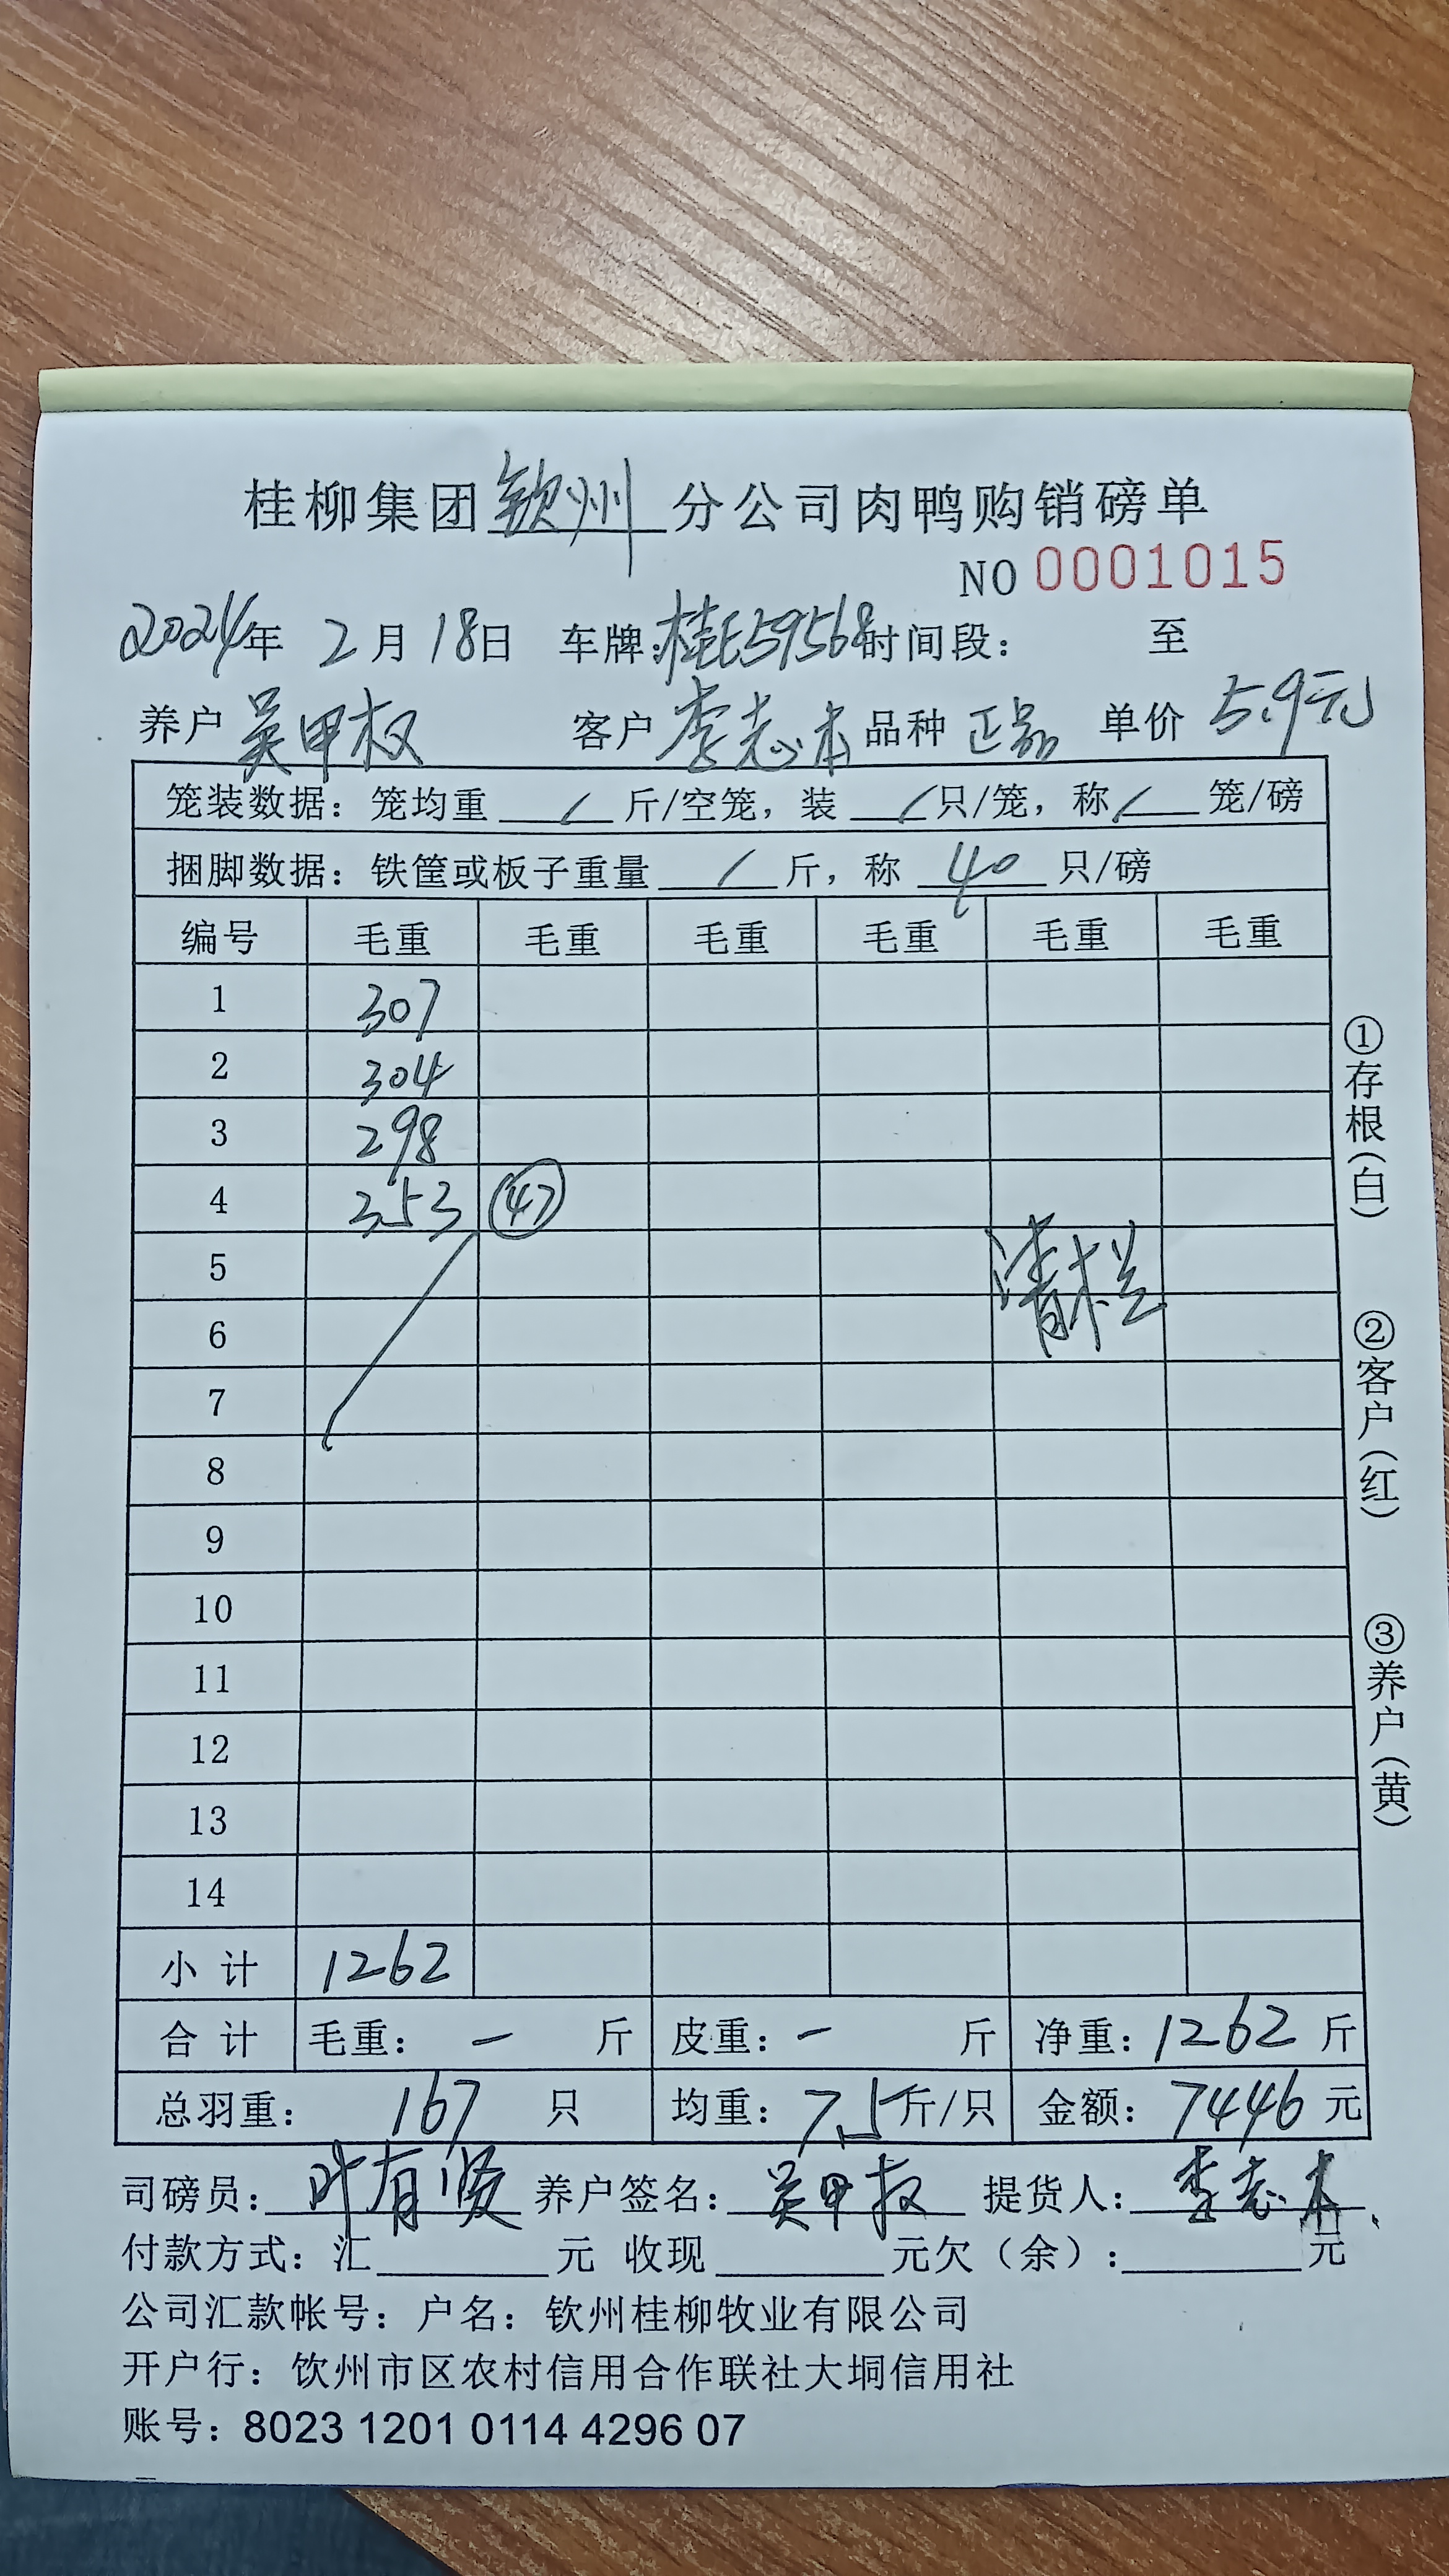 桂柳集团钦州分公司肉鸭购销磅单
NO 0001015
2024年 2月 18日 车牌:桂E59568时间段: 至
养户 吴甲权 客户 李志本 品种 正品 单价 5.9元
笼装数据: 笼均重 / 斤/空笼, 装 / 只/笼, 称 / 笼/磅
捆脚数据: 铁筐或板子重量 / 斤, 称 40 只/磅
编号 毛重 毛重 毛重 毛重 毛重 毛重
1 307
2 304
3 298
4 353 47
5
清栏
6
7
8
9
10
11
12
13
14
小计 1262
合计 毛重: — 斤 皮重: — 斤 净重: 1262 斤
总羽重: 167 只 均重: 7.5斤/只 金额: 7446 元
司磅员: 叶有贤 养户签名: 吴甲权 提货人: 李志本
付款方式: 汇 元 收现 元欠(余): 元
公司汇款帐号: 户名: 钦州桂柳牧业有限公司
开户行: 饮州市区农村信用合作联社大垌信用社
账号: 8023 1201 0114 4296 07
①存根(白)
②客户(红)
③养户(黄)